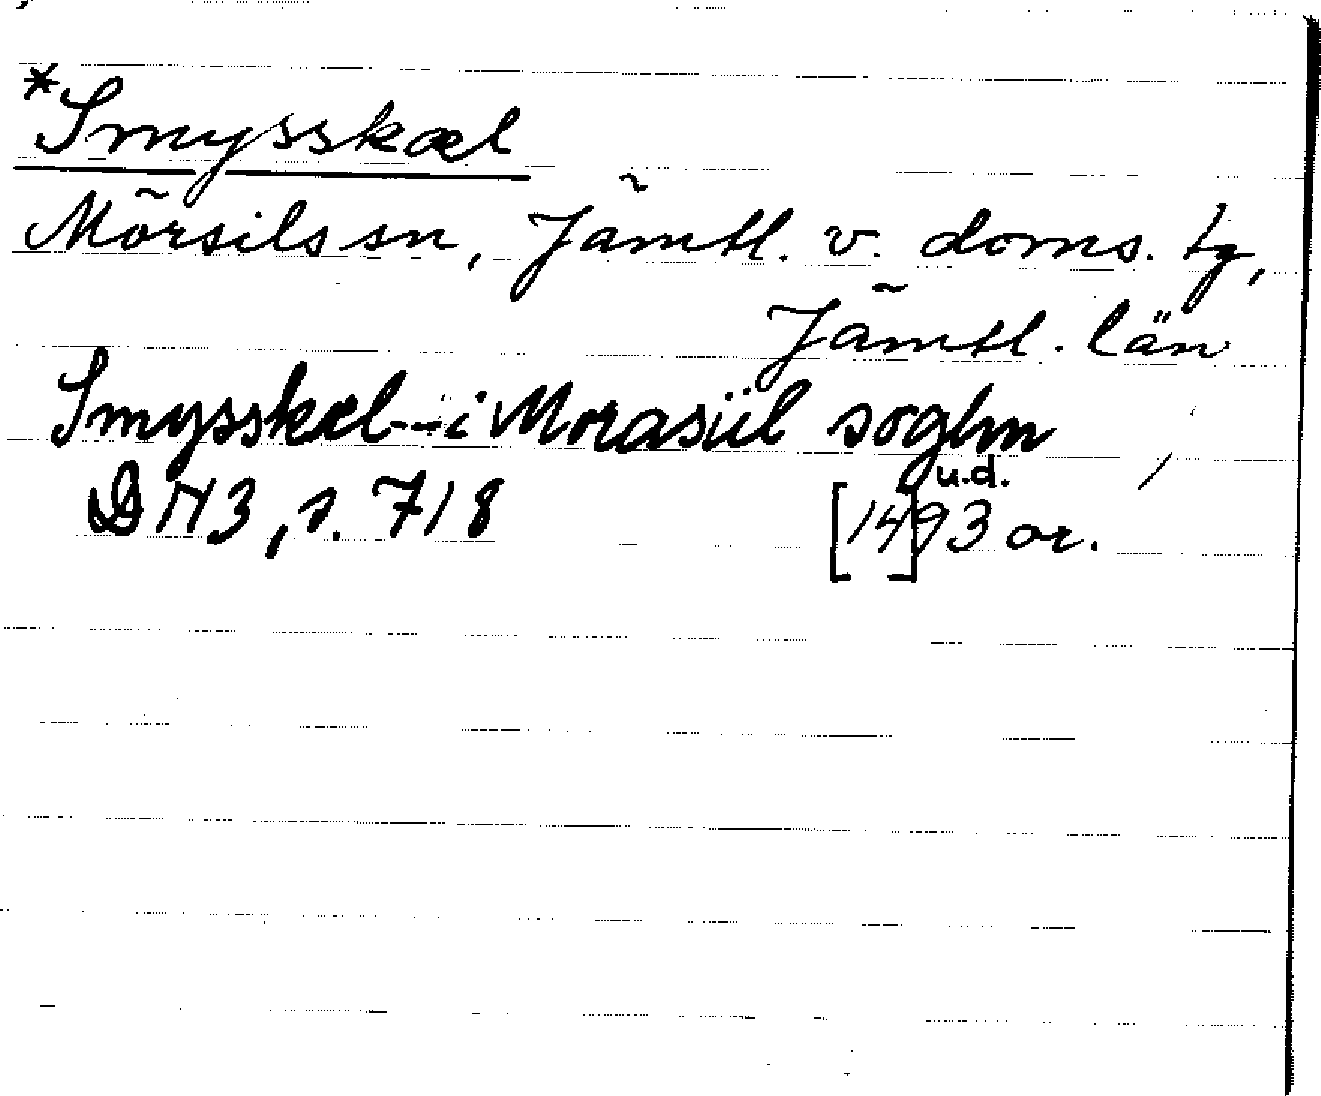 *Smysskæl
Mörsils sn, Jämtl. v. doms. tg,
Jämtl. län
Smysskæl -- i Morasiil soghn
DN 3, s. 718 [14]93 u.d. or.